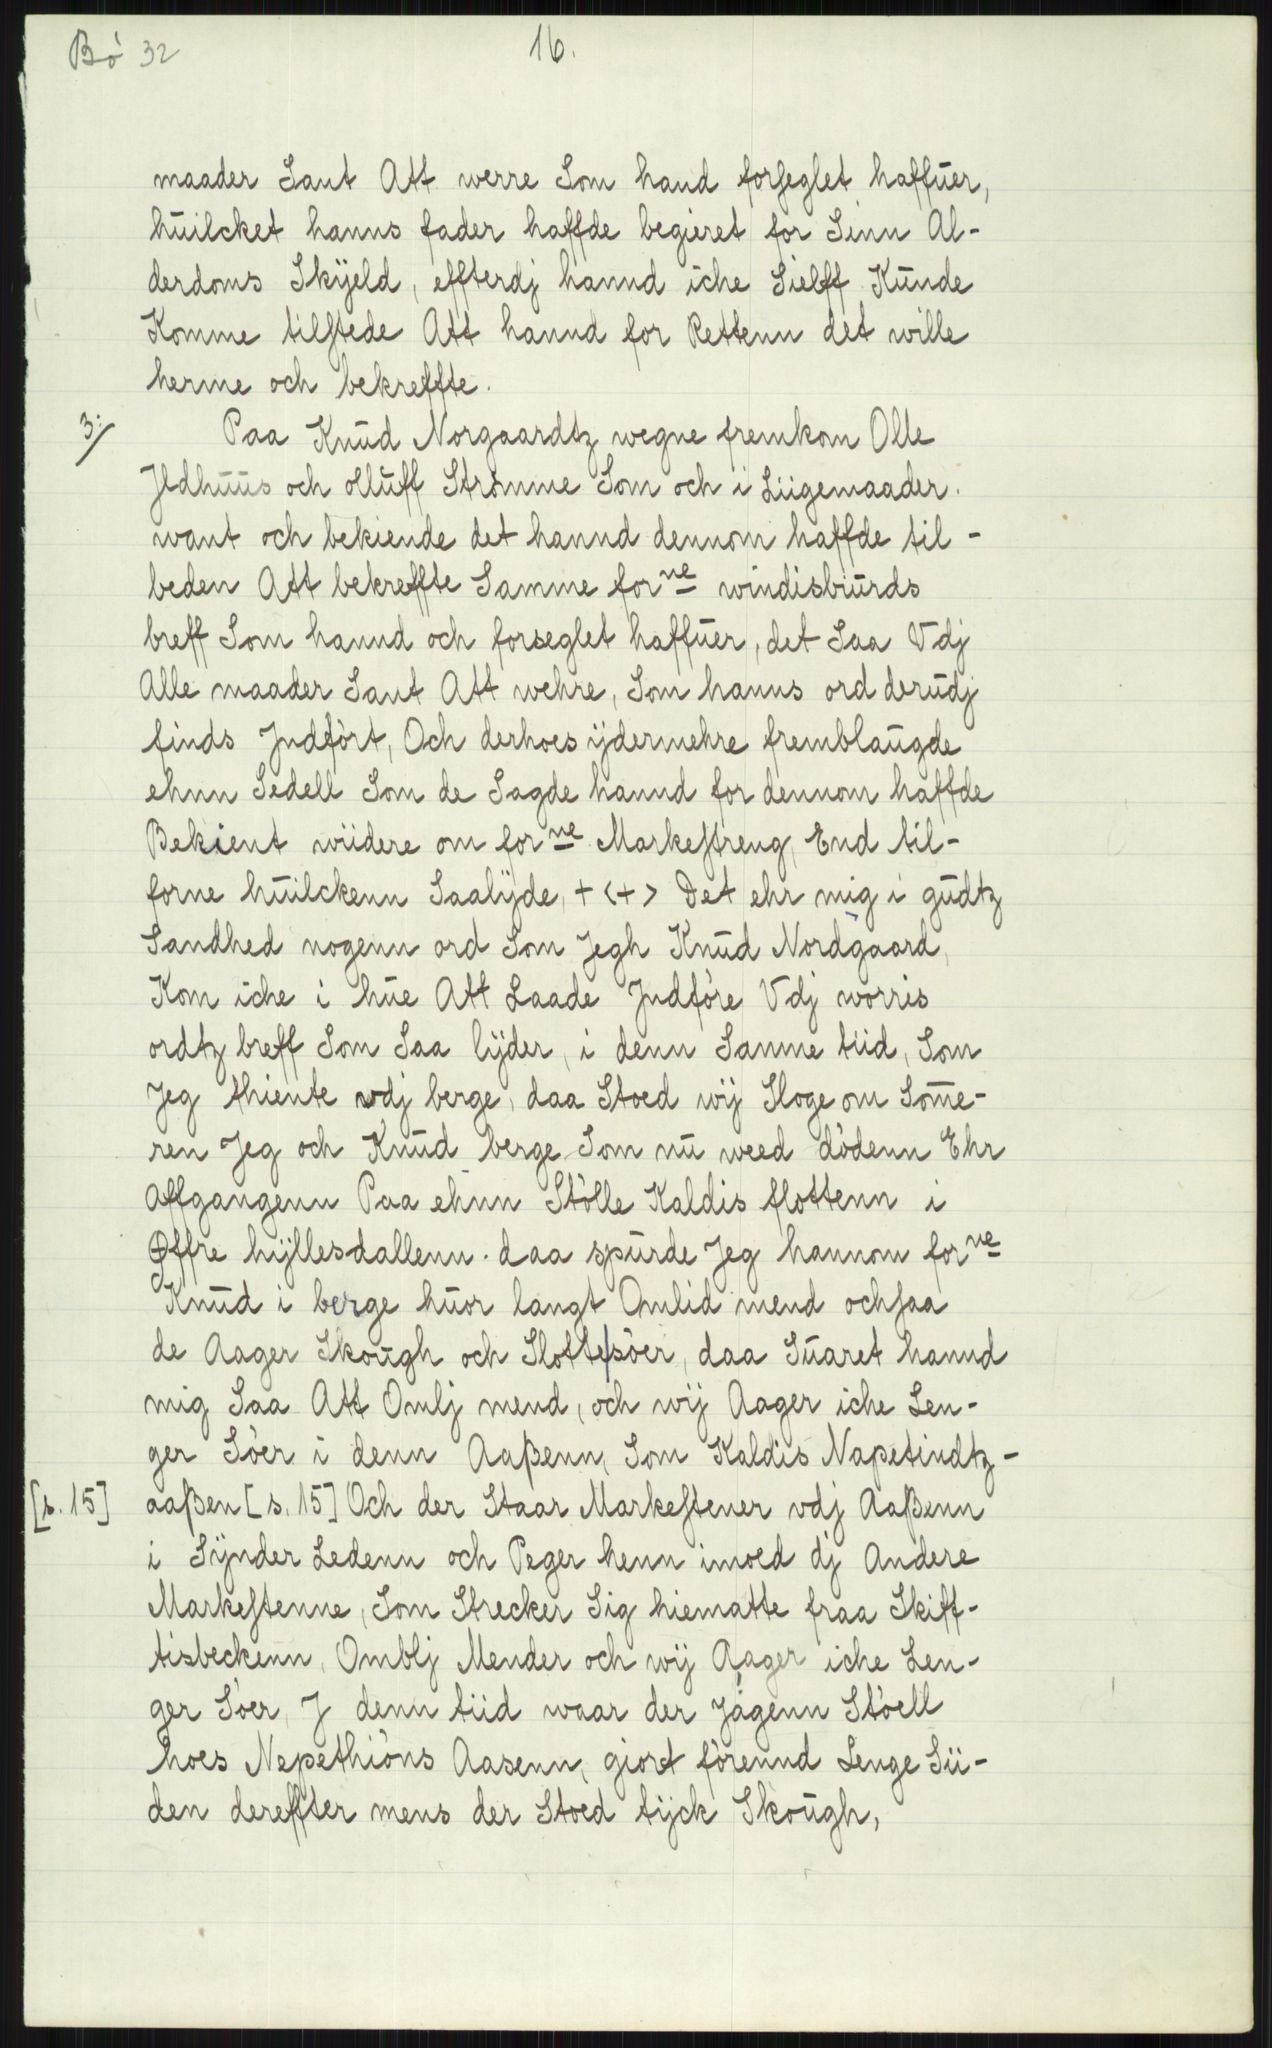 Bø 32
16.
maader Sant Att werre Som hand forseglet haffuer,
huilcket hanns fader haffde begieret for Sinn Al-
derdoms Skyeld, effterdj hannd iche Sielff Kunde
Komme tilstede Att hannd for Rettenn det wille
herme och bekreffte.
3:/ Paa Knud Norgaardtz wegne fremkom Olle
Jldhuus och olluff Strømme Som och i Liigemaader.
want och bekiende det hannd dennom haffde til-
beden Att bekreffte Samme forne windisbiurds
breff Som hannd och forseglet haffuer, det Saa Vdj
Alle maader Sant Att wehre, Som hanns ord derudj
finds Jndført, Och derhoes ÿdermehre fremblaugde
ehnn Sedell Som de Sagde hannd for dennom haffde
Bekient wiidere om forne Markestreng, End til-
forne huilckenn Saalÿde, + <+> Det ehr mig i gudtz
Sandhed nogenn ord Som Jegh Knud Nordgaard,
Kom iche i hue Att Laade Jndføre Vdj worris
ordtz breff Som Saa lÿder, i denn Samme tiid, Som
Jeg thiente vdj berge, daa Stoed wij Sloge om Som̄e-
ren Jeg och Knud berge Som nu weed dødenn Ehr
Affgangenn Paa ehnn Stølle Kaldis flottenn i
Øffre hÿllesdallenn. daa spurde Jeg hannom forne
Knud i berge huor langt Omlid mend ochsaa
de Aager Skough och Slottesøer, daa Suaret hannd
mig Saa Att Omlj mend, och wij Aager iche Len-
ger Søer i denn Aaßenn, Som Kaldis Napetindtz-
[s. 15] aaßen [s. 15] Och der Staar Markestener vdj Aaßenn
i Sÿnder Ledenn och Peger henn imoed dj Andere
Markestenne, Som Strecker Sig hiematte fraa Skiff-
tisbeckenn, Omblj Mender och wij Aager iche Len-
ger Søer, J denn tiid waar der Jngenn Støell
hoes Nepethiøns Aasenn, giort førennd Lenge Sii-
den dereffter mens der Stoed tÿck Skough,